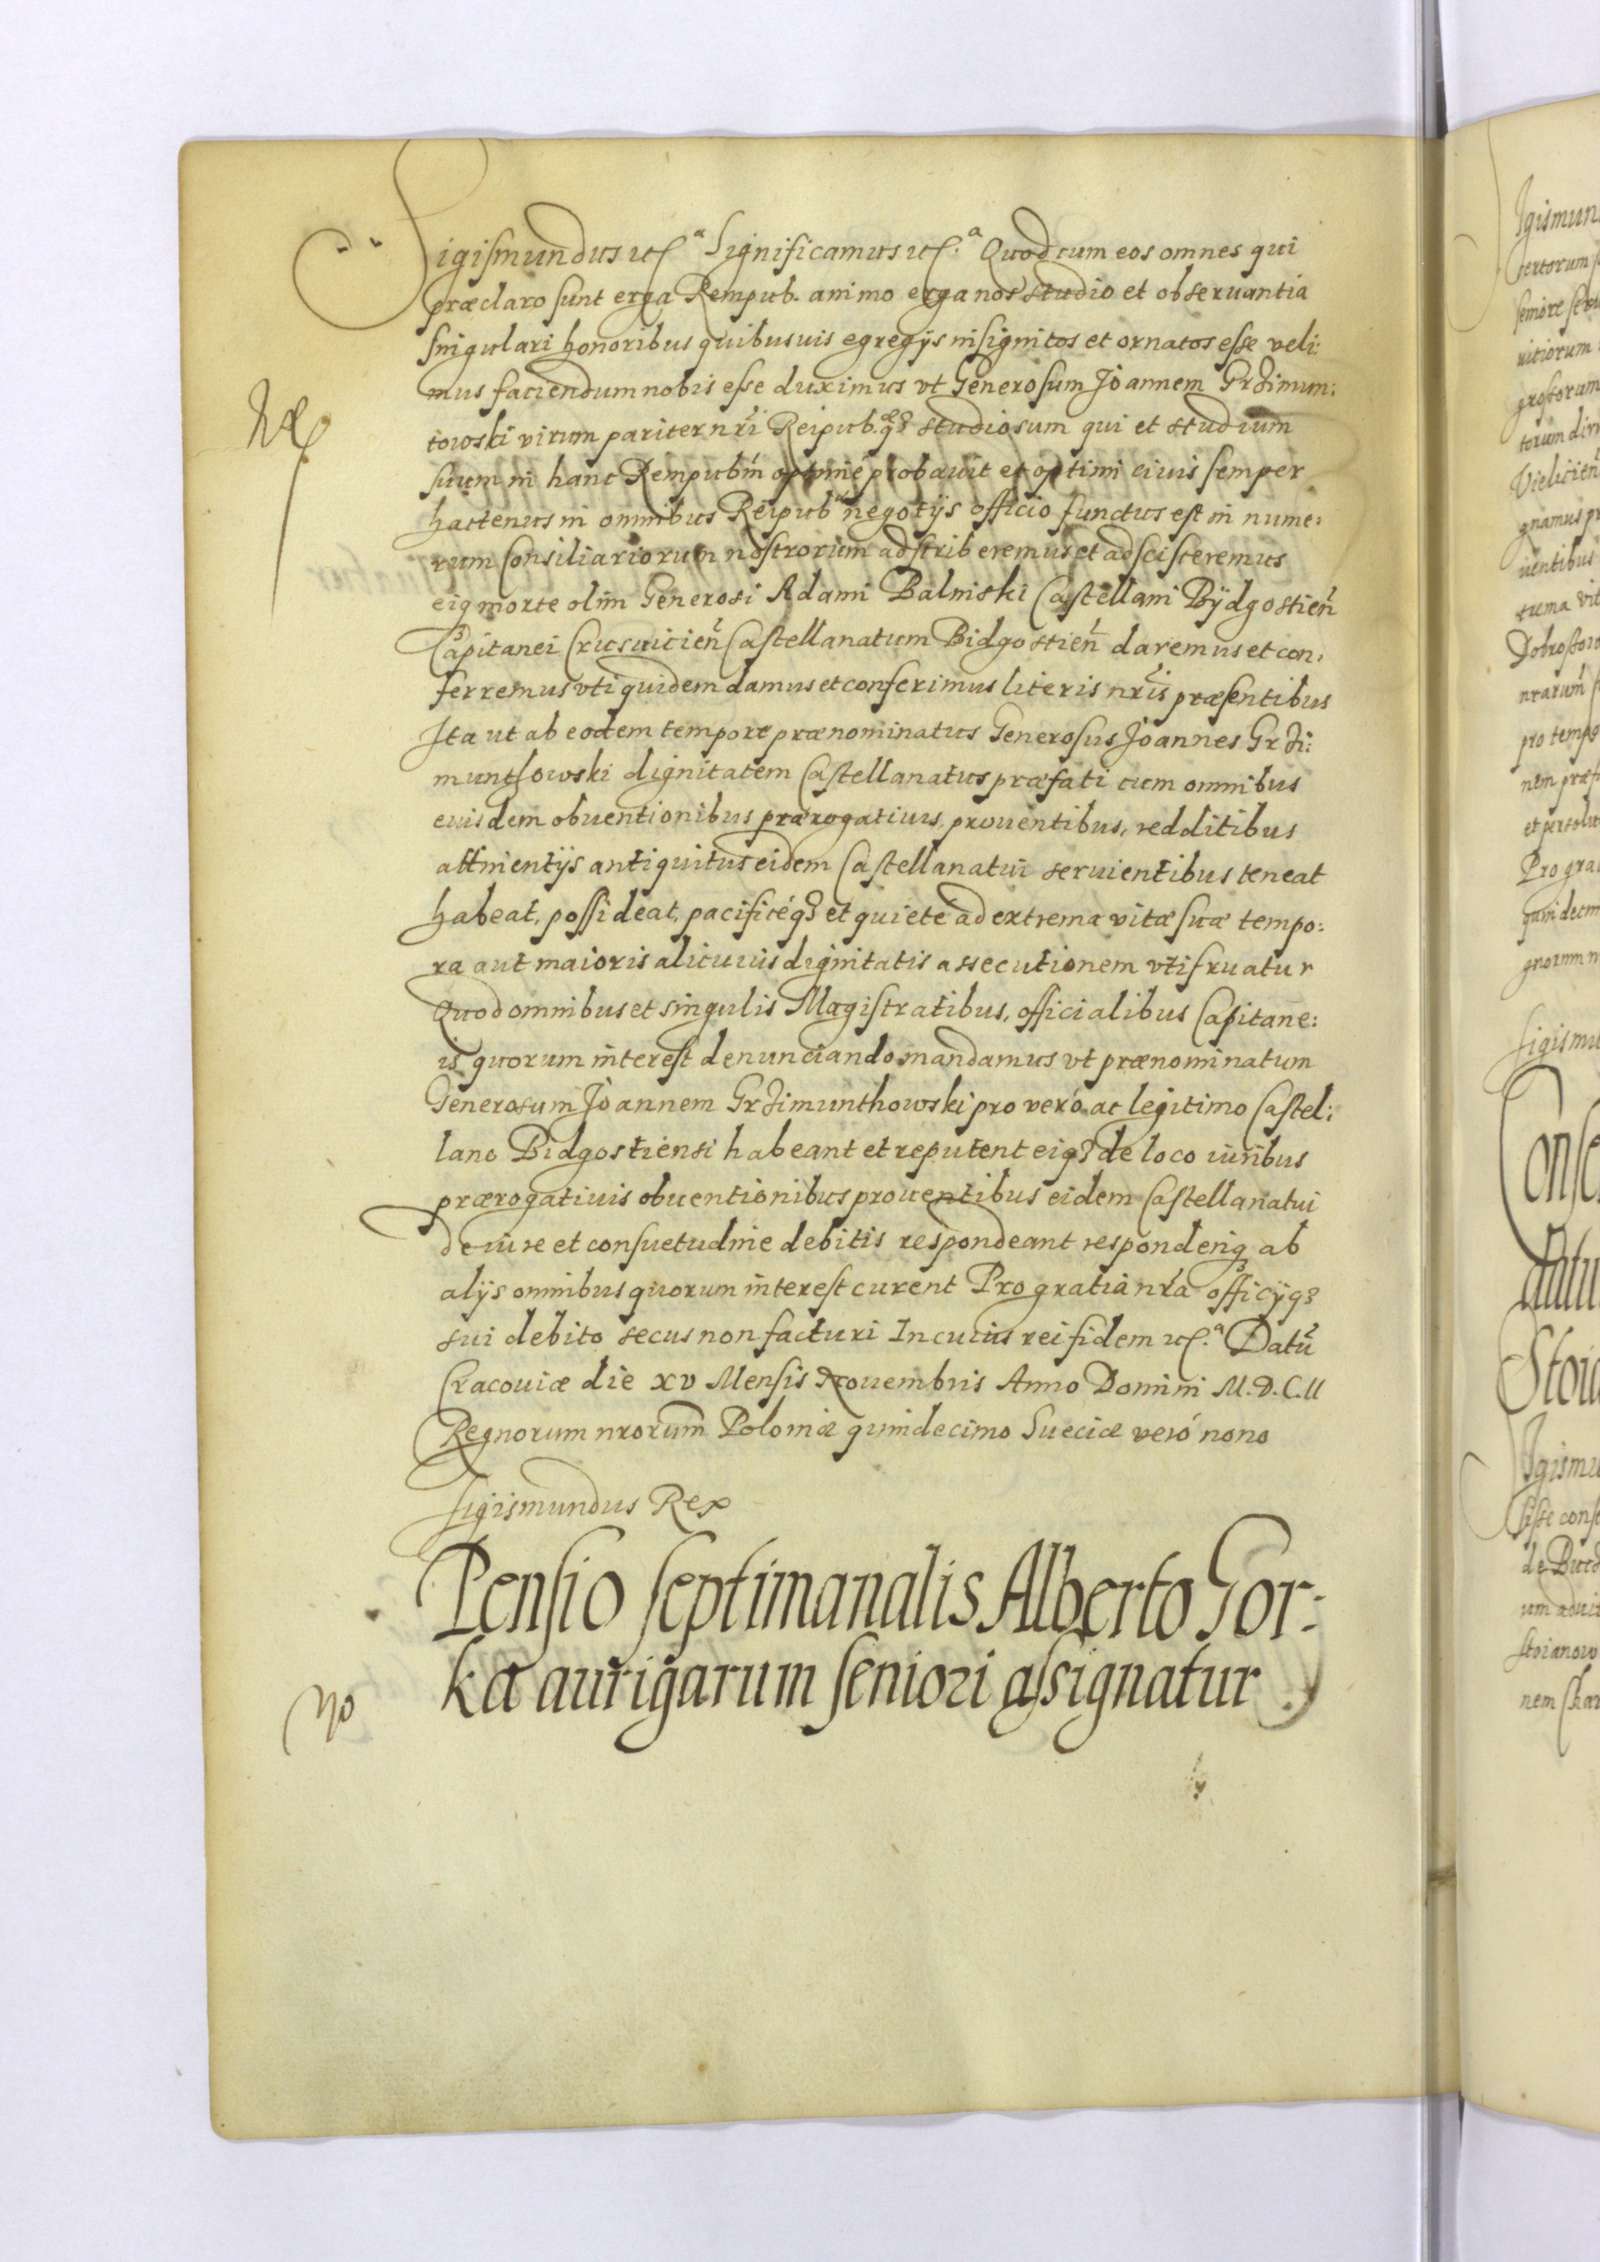 Sigismundus etc.ª Significamus etc.ª Quod cum eos omnes qui
præclaro sunt erga Rempub. animo erga nos studio et obseruantia
singulari honoribus quibusuis egregijs insignitos et ornatos esse veli:
mus faciendum nobis esse duximus vt Generosum Joannem Grzimun:
towski virum pariter nri Reipub. q3 studiosum qui et studium
suum in hanc Rempubm optimé probauit et optimi ciuis semper
hactenus in omnibus Reipub negotijs officio functus est in nume:
rum Consiliariorum nostrorum adscriberemus et adscisceremus
eiq morte olim Generosi Adami Balinski Castellani Bÿdgostien
Capitanei Crusuicien Castellanatum Bidgostien daremus et con,
ferremus vti quidem damus et conferimus literis nris præsentibus
Ita ut ab eodem tempore prænominatus Generosus Joannes Grzi:
munthowski dignitatem Castellanatus præfati cum omnibus
eiusdem obuentionibus prærogatiuis, prouentibus, redditibus
attinentijs antiquitus eidem Castellanatui seruientibus teneat
habeat, possideat, pacificéq3 et quieté ad extrema vitæ suæ tempo:
ra aut maioris alicuius dignitatis assecutionem vtifruatur
Quod omnibus et singulis Magistratibus, officialibus Capitane:
is quorum interest denunciando mandamus vt prænominatum
Generosum Joannem Grzimunthowski pro veró ac legitimo Castel:
lano Bidgostiensi habeant et reputent eiq3 de loco iuribus
prærogatiuis obuentionibus prouentibus eidem Castellanatui
de iure et consuetudine debitis respondeant responderiq ab
alijs omnibus quorum interest curent Pro gratia nra officijq3
sui debito secus non facturi In cuius rei fidem etc.ª Datu
Cracouiæ die xv Mensis Nouembris Anno Domini M.D.C.II
Regnorum nrorum Poloniæ quindecimo Sueciæ veró nono
Sigismundus Rex
Pensio septimanalis Alberto Gor:
ka aurigarum seniori assignatur